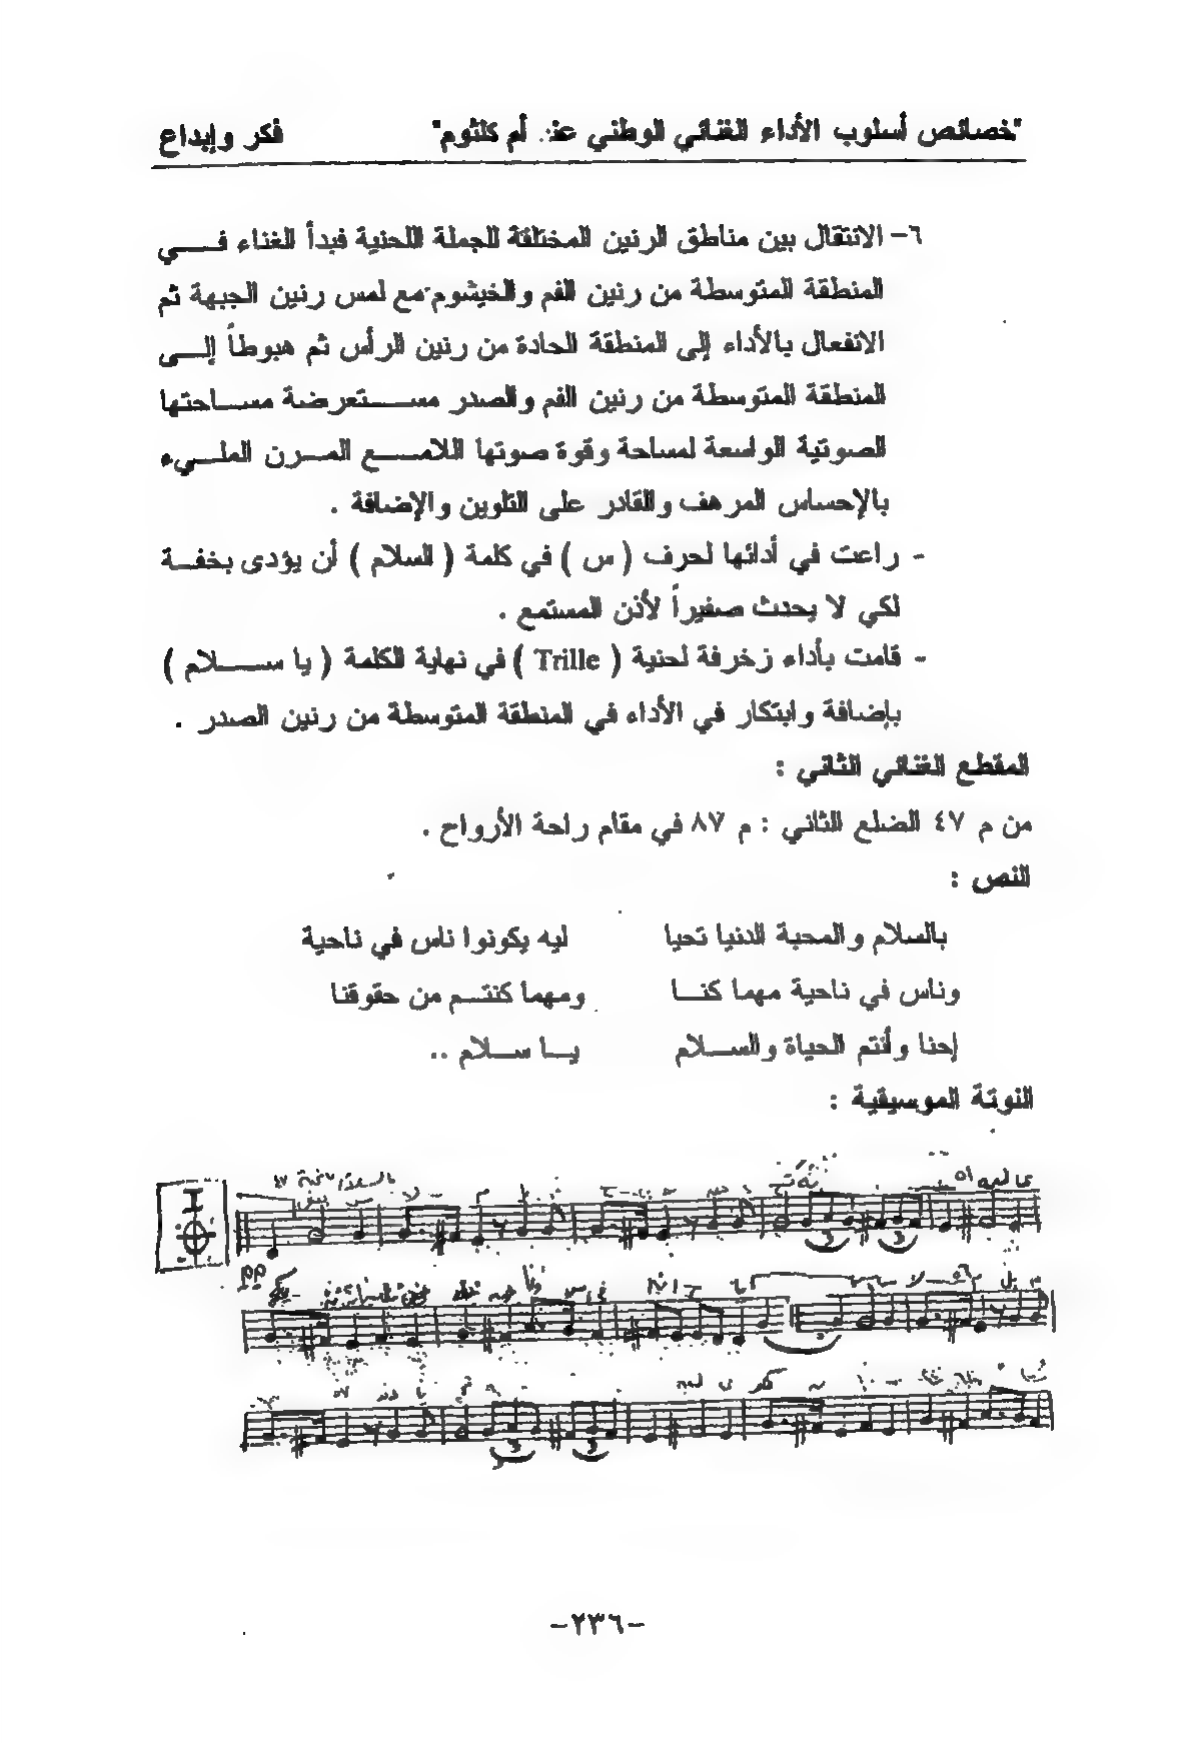 "خصائص أسلوب الأداء الغنائي الوطني عند أم كلثوم" فكر وإبداع
٦- الانتقال بين مناطق الرنين المختلفة للجملة اللحنية فبدأ الغناء فـــي
المنطقة المتوسطة من رنين الفم والخيشوم مع لمس رنين الجبهة ثم
الانفعال بالأداء إلى المنطقة الحادة من رنين الرأس ثم هبوطاً إلــى
المنطقة المتوسطة من رنين الفم والصدر مســـتعرضة مســـاحتها
الصوتية الواسعة لمساحة وقوة صوتها اللامـــع المــرن الملــيء
بالإحساس المرهف والقادر على التلوين والإضافة .
- راعت في أدائها لحرف ( س ) في كلمة ( السلام ) أن يؤدى بخفــة
لكي لا يحدث صفيراً لأذن المستمع .
- قامت بأداء زخرفة لحنية ( Trille ) في نهاية الكلمة ( يا ســـــلام )
بإضافة وابتكار في الأداء في المنطقة المتوسطة من رنين الصدر .
المقطع الغنائي الثاني :
من م ٤٧ الضلع الثاني : م ٨٧ في مقام راحة الأرواح .
النص :
بالسلام والمحبة الدنيا تحيا ليه يكونوا ناس في ناحية
وناس في ناحية مهما كنـــا ومهما كنتــم من حقوقنا
إحنا وأنتم الحياة والســـلام يـــا ســـلام ..
النوتة الموسيقية :
I
pp
3 3
3 3
-٢٣٦-